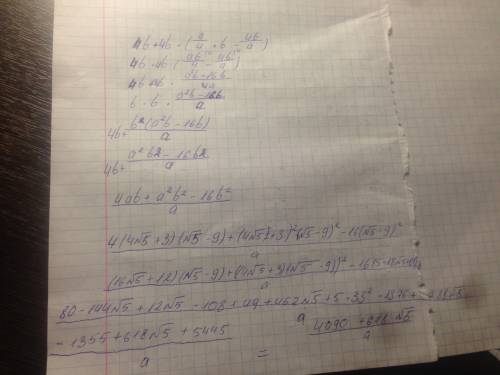 4b+4b · (a/4 · b - 4b/a)
4b · 4b · (ab/4 - 4b/a)
4b · 4b · (a²b-16b)/4a
b · b · (a²b-16b)/a
4b+ b²(a²b-16b)/a
4b+ (a²b2-16b2)/a
(4ab+a²b²-16b²)/a
4(4√5+3)(√5-9)+(4√5+3)²(√5-9)²-16(√5-9)²
a
(16√5+12)(√5-9)+((4√5+3)(√5-9))²
80-144√5+12√5-108+49+462√5+5·33²
a
-1355+618√5+5445
a
=
(4090+618√5)/a